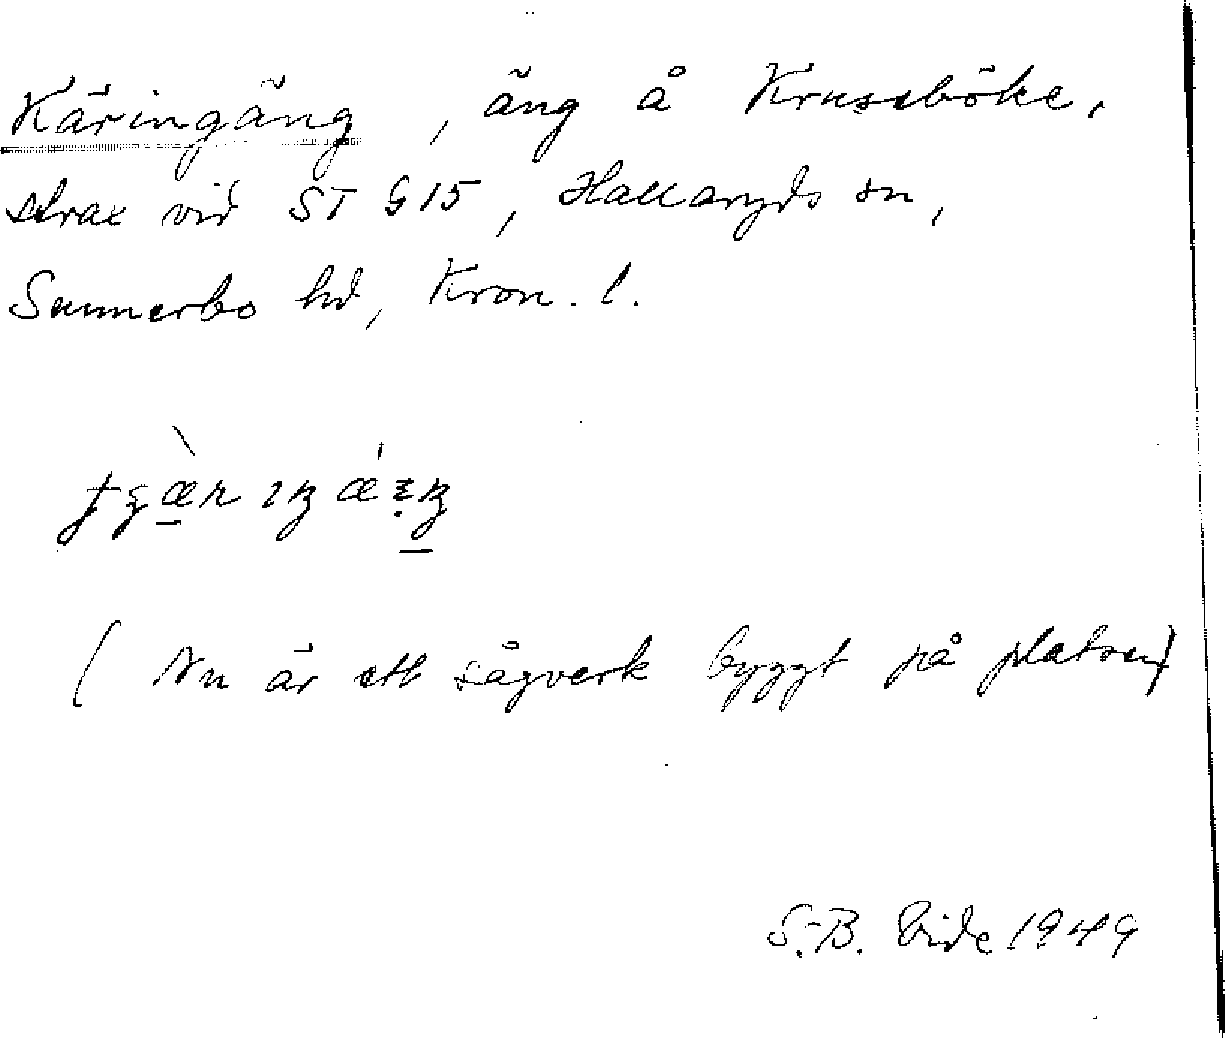 Käringäng, äng å Krusseböke,
strax vid ST G15, Hallaryds sn,
Sunnerbo hd, Kron. l.
(Nu är ett sågverk byggt på platsen)
S.-B. Vide 1949